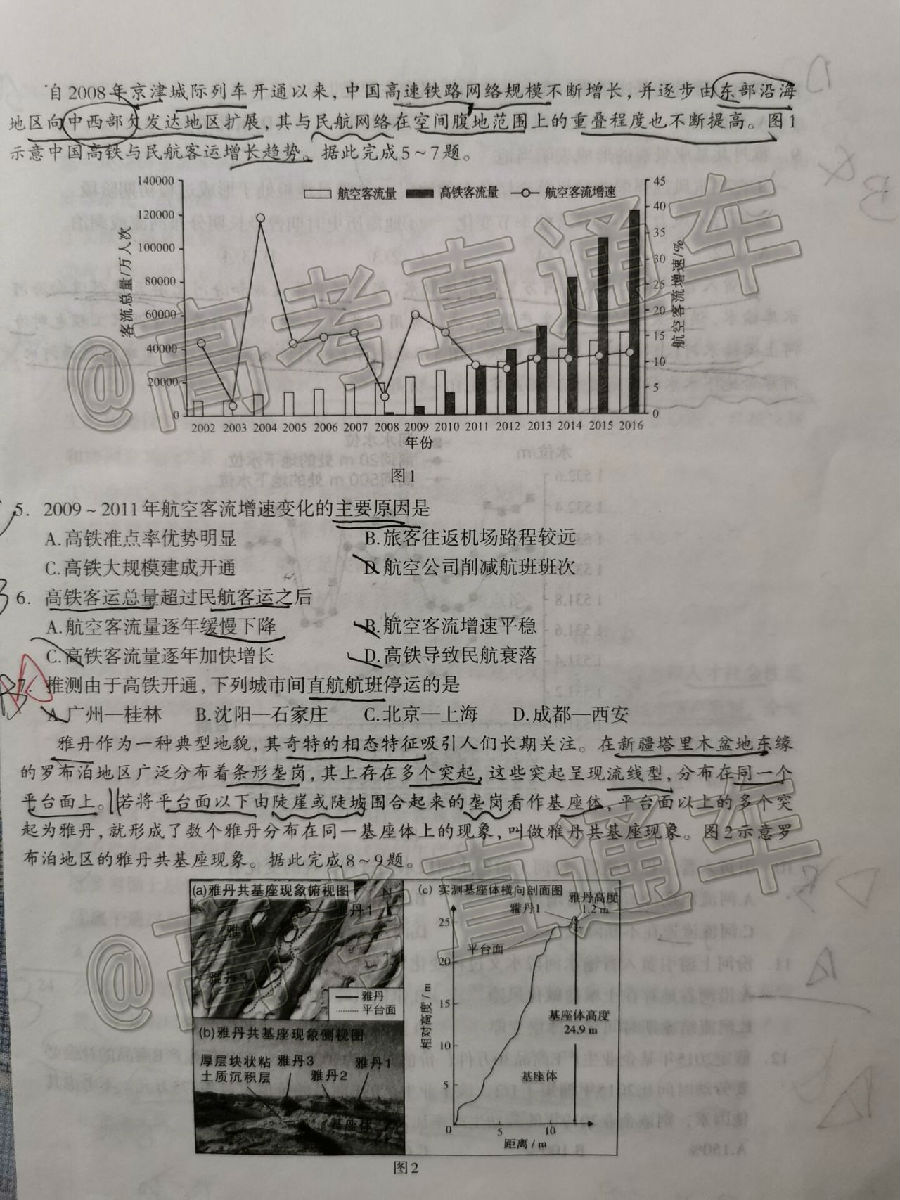 自2008年京津城际列车开通以来，中国高速铁路网络规模不断增长，并逐步由东部沿海
地区向中西部欠发达地区扩展，其与民航网络在空间腹地范围上的重叠程度也不断提高。图1
示意中国高铁与民航客运增长趋势。据此完成5~7题。
航空客流量 高铁客流量 航空客流增速
客流总量/万人次
140000
120000
100000
80000
60000
40000
20000
0
航空客流增速/%
45
40
35
30
25
20
15
10
5
0
2002 2003 2004 2005 2006 2007 2008 2009 2010 2011 2012 2013 2014 2015 2016
年份
图1
5. 2009~2011年航空客流增速变化的主要原因是
A.高铁准点率优势明显 B.旅客往返机场路程较远
C.高铁大规模建成开通 D.航空公司削减航班班次
6. 高铁客运总量超过民航客运之后
A.航空客流量逐年缓慢下降 B.航空客流增速平稳
C.高铁客流量逐年加快增长 D.高铁导致民航衰落
7. 推测由于高铁开通，下列城市间直航航班停运的是
A.广州—桂林 B.沈阳—石家庄 C.北京—上海 D.成都—西安
雅丹作为一种典型地貌，其奇特的相态特征吸引人们长期关注。在新疆塔里木盆地东缘
的罗布泊地区广泛分布着条形垄岗，其上存在多个突起，这些突起呈现流线型，分布在同一个
平台面上。若将平台面以下由陡崖或陡坡围合起来的垄岗看作基座体，平台面以上的多个突
起为雅丹，就形成了数个雅丹分布在同一基座体上的现象，叫做雅丹共基座现象。图2示意罗
布泊地区的雅丹共基座现象。据此完成8~9题。
(a)雅丹共基座现象俯视图 N
雅丹1
雅丹
平台面
(b)雅丹共基座现象侧视图
厚层块状粘
土质沉积层
雅丹3
雅丹2
雅丹1
基座体
(c) 实测基座体横向剖面图
雅丹1
雅丹高度
1.2 m
平台面
相对高度/m
25
20
15
10
5
0
基座体高度
24.9 m
基座体
5 10
距离/m
图2
@高考直通车
@高考直通车